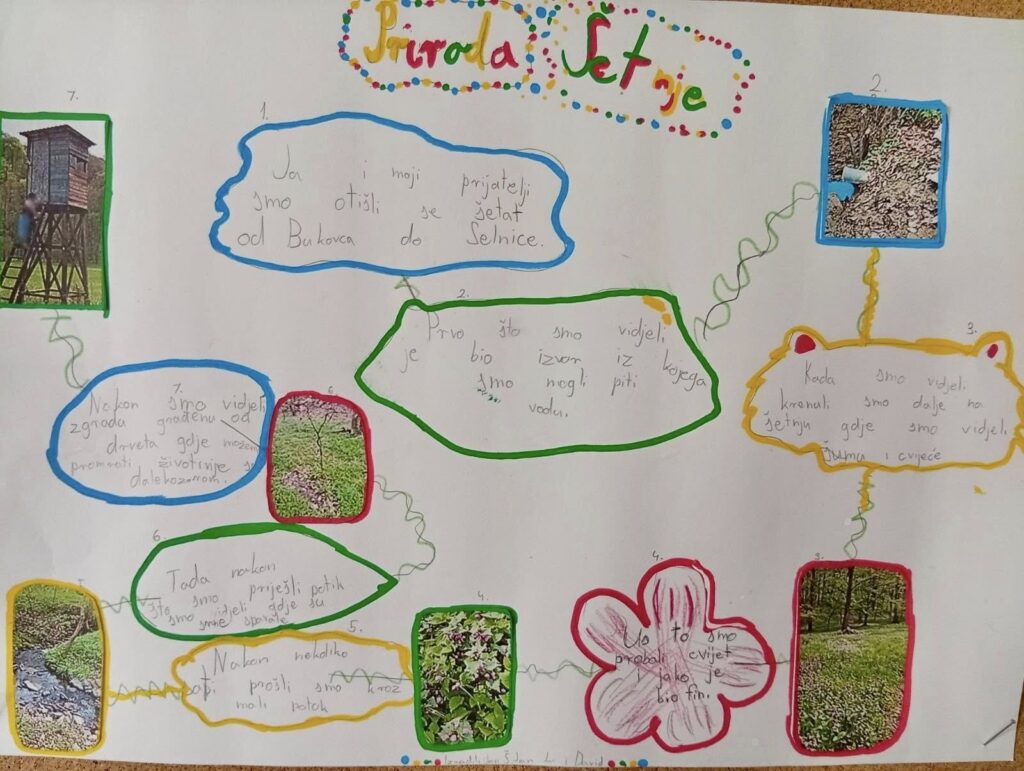 Priroda Šetnje
1.
Ja i moji prijatelji
smo otišli se šetat
od Bukovca do Selnice.
2.
Prvo što smo vidjeli
je bio izvor iz kojega
smo mogli piti
vodu.
2.
3.
Kada smo vidjeli
krenuli smo dalje na
šetnju gdje smo vidjeli
šumu i cvijeće
3.
4.
Uz to smo
probali cvijet
i jako je
bio fin.
4.
5.
Nakon nekoliko
prošli smo kroz
mali potok
5.
6.
Tada nakon
što smo priješli potik
smo vidjeli gdje su
srne spavale
6.
7.
Nakon smo vidjeli
zgradu građenu od
drveta gdje možemo
promatrati životinje s
dalekozorom.
7.
i David